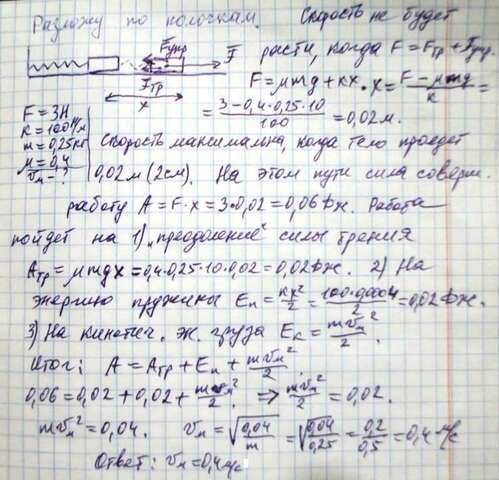 Разложу по полочкам. Скорость не будет
расти, когда F = Fтр + Fупр
Fупр F
Fтр
x
F = μmg + kx. x = (F − μmg)/k =
= (3 − 0,4·0,25·10)/100 = 0,02 м.
F = 3Н
k = 100 Н/м
m = 0,25 кг
μ = 0,4
vм − ?
Скорость максимальна, когда тело пройдет
0,02 м (2см). На этом пути сила соверш.
работу A = F·x = 3·0,02 = 0,06 Дж. Работа
пойдет на 1) "преодоление" силы трения
Aтр = μmgx = 0,4·0,25·10·0,02 = 0,02 Дж. 2) На
энергию пружины Eп = kx²/2 = 100·0,0004/2 = 0,02 Дж.
3) На кинетич. эн. груза Eк = mvм²/2.
Итог: A = Aтр + Eп + mvм²/2.
0,06 = 0,02 + 0,02 + mvм²/2. ⇒ mvм²/2 = 0,02.
mvм² = 0,04. vм = √(0,04/m) = √(0,04/0,25) = 0,2/0,5 = 0,4 м/с
Ответ: vм = 0,4 м/с